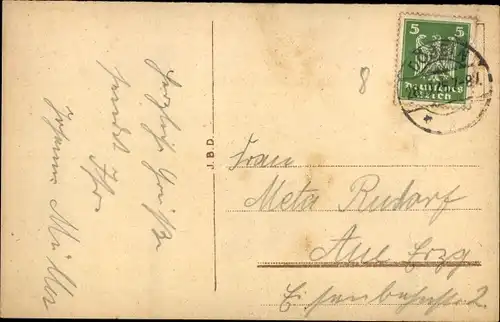 Herzliche Grüße
sendet Ihr.
Johanna Müller
J.B.D.
8
5 5
Deutsches
Reich
Frau
Meta Rudorf
Aue Erzg
Eisenbahnstr 2